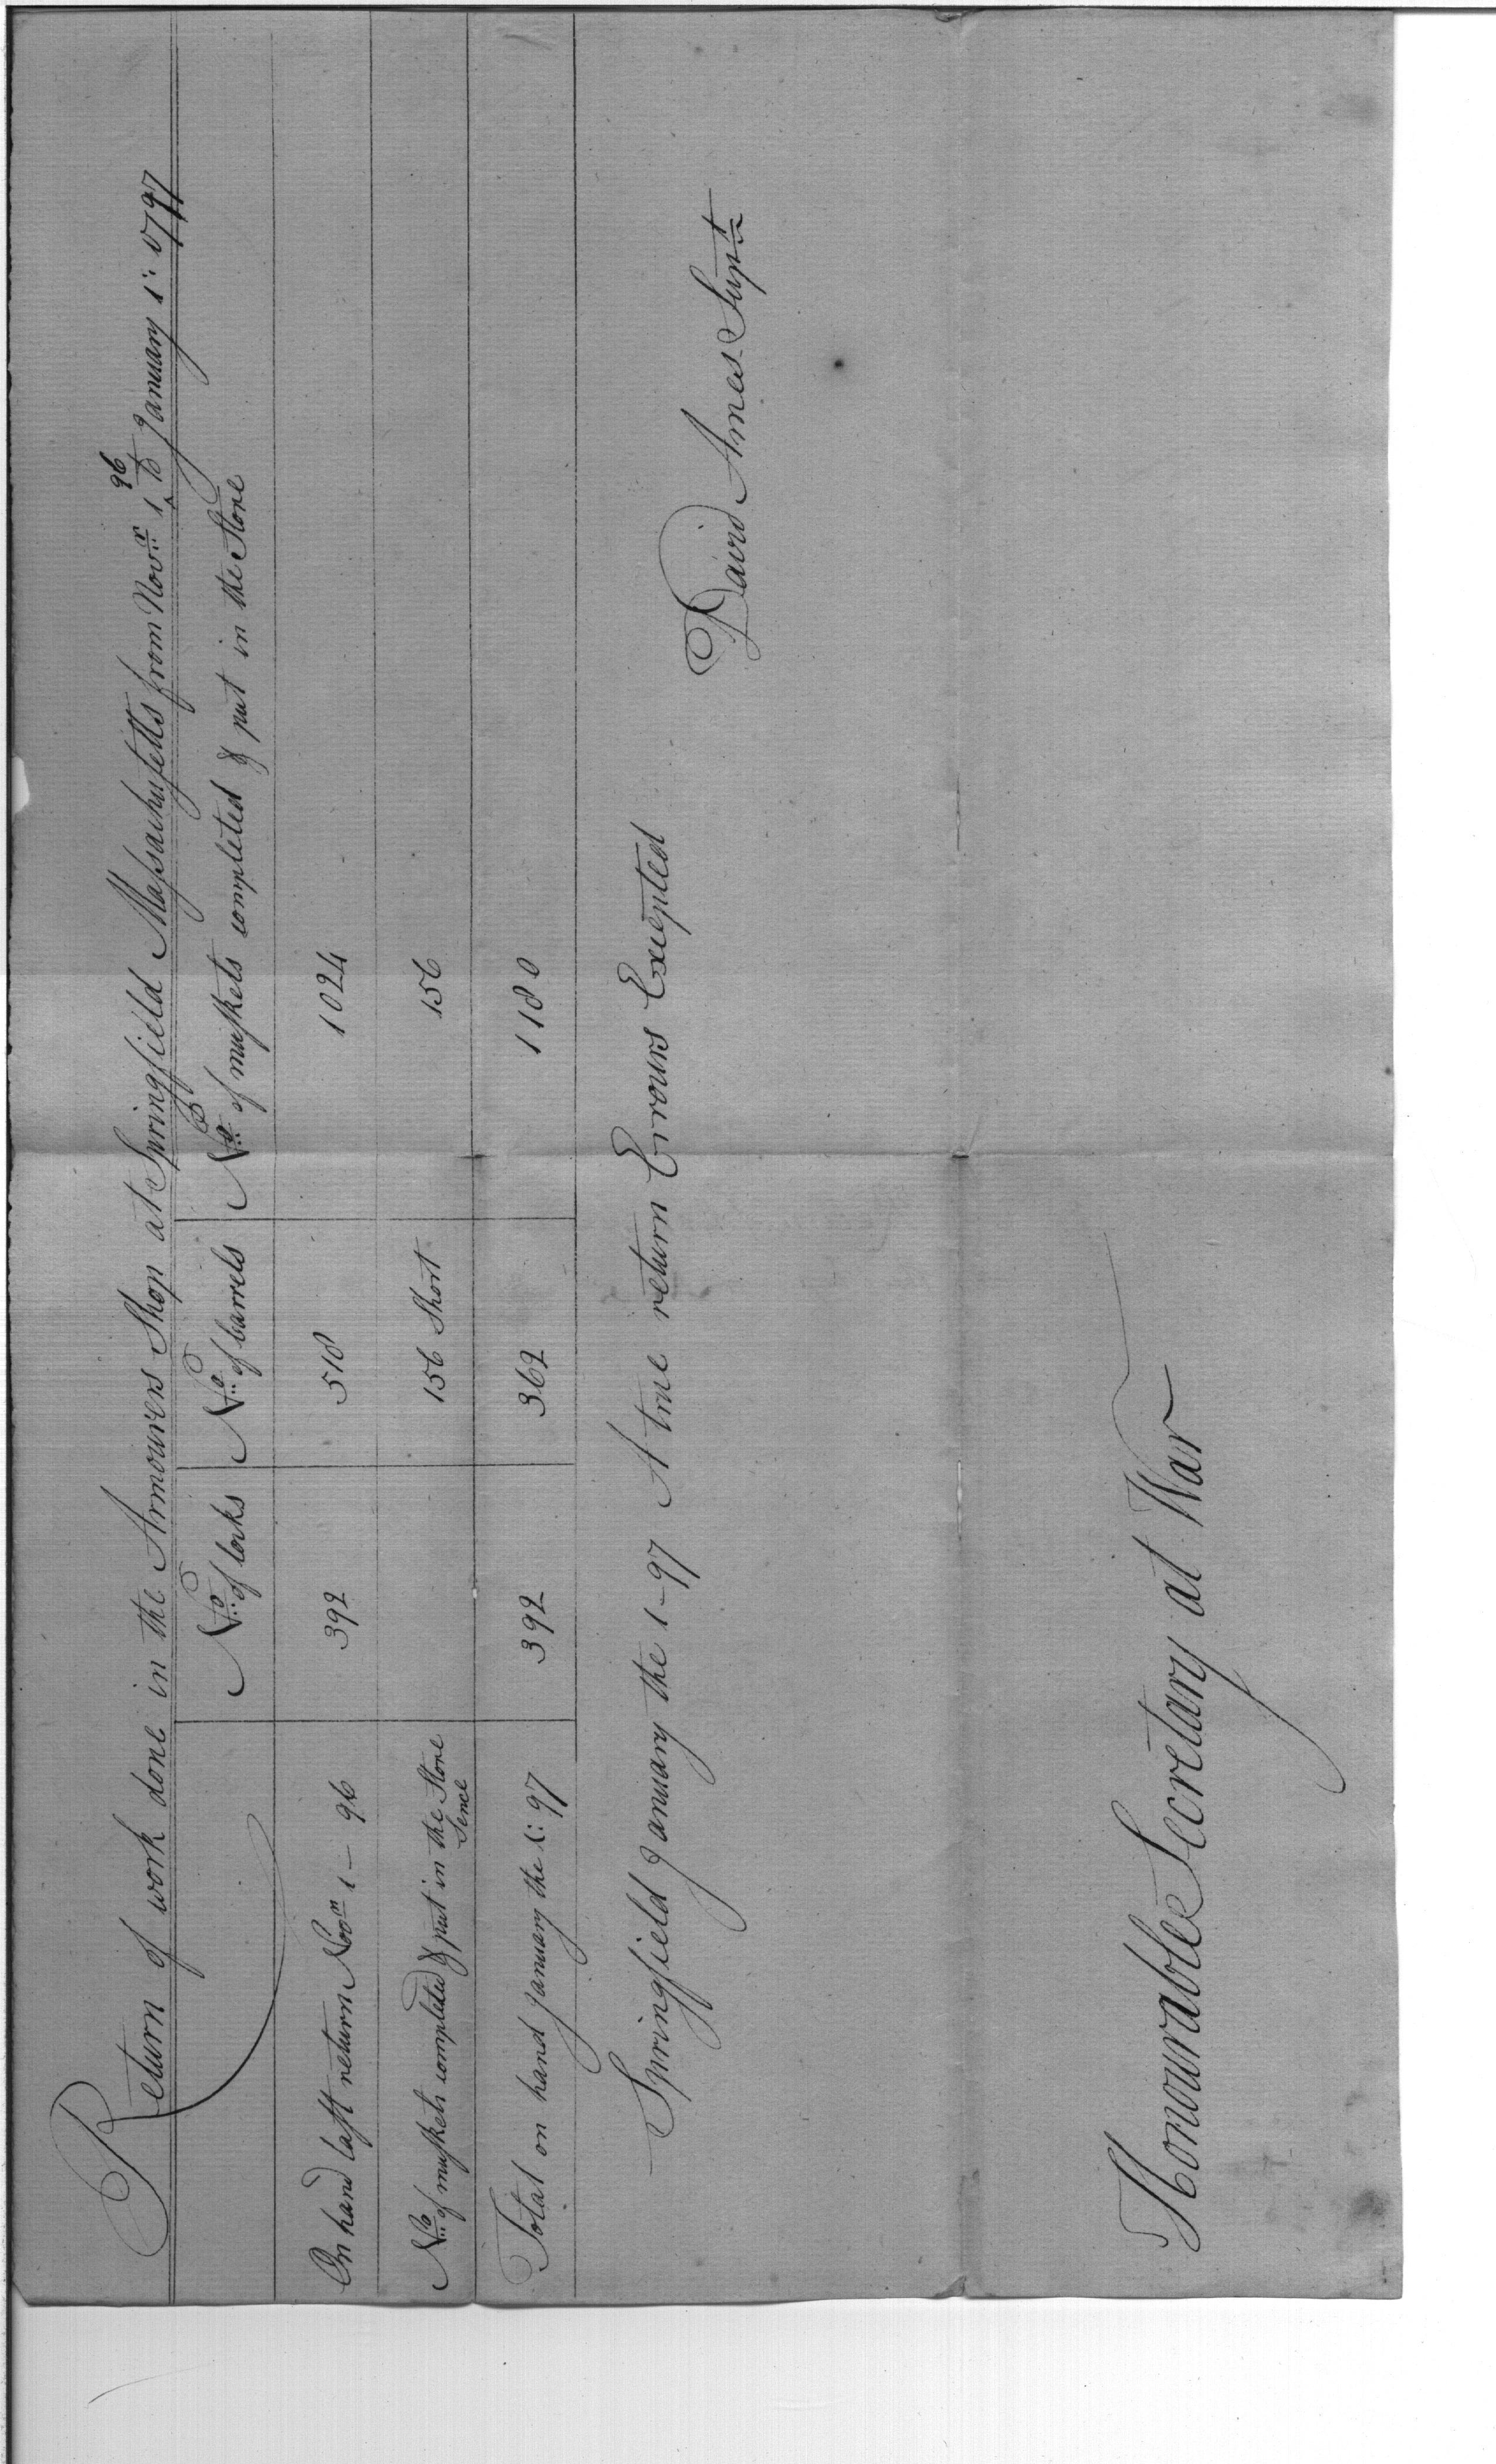 Return of work done in the Armourers Shop at Springfield Massachusetts from Novr 1 96 to January 1: 1797
No of locks No of barrels No of muskets completed & put in the Store
On hand last return Novm 1 – 96 392 518 1024
No of muskets completed & put in the Store Sence 156 Short 156
Total on hand January the 1: 97 392 362 1180
Springfield January the 1–97 A true return Errours Excepted
David Ames Supt
Honourable Secretary at War